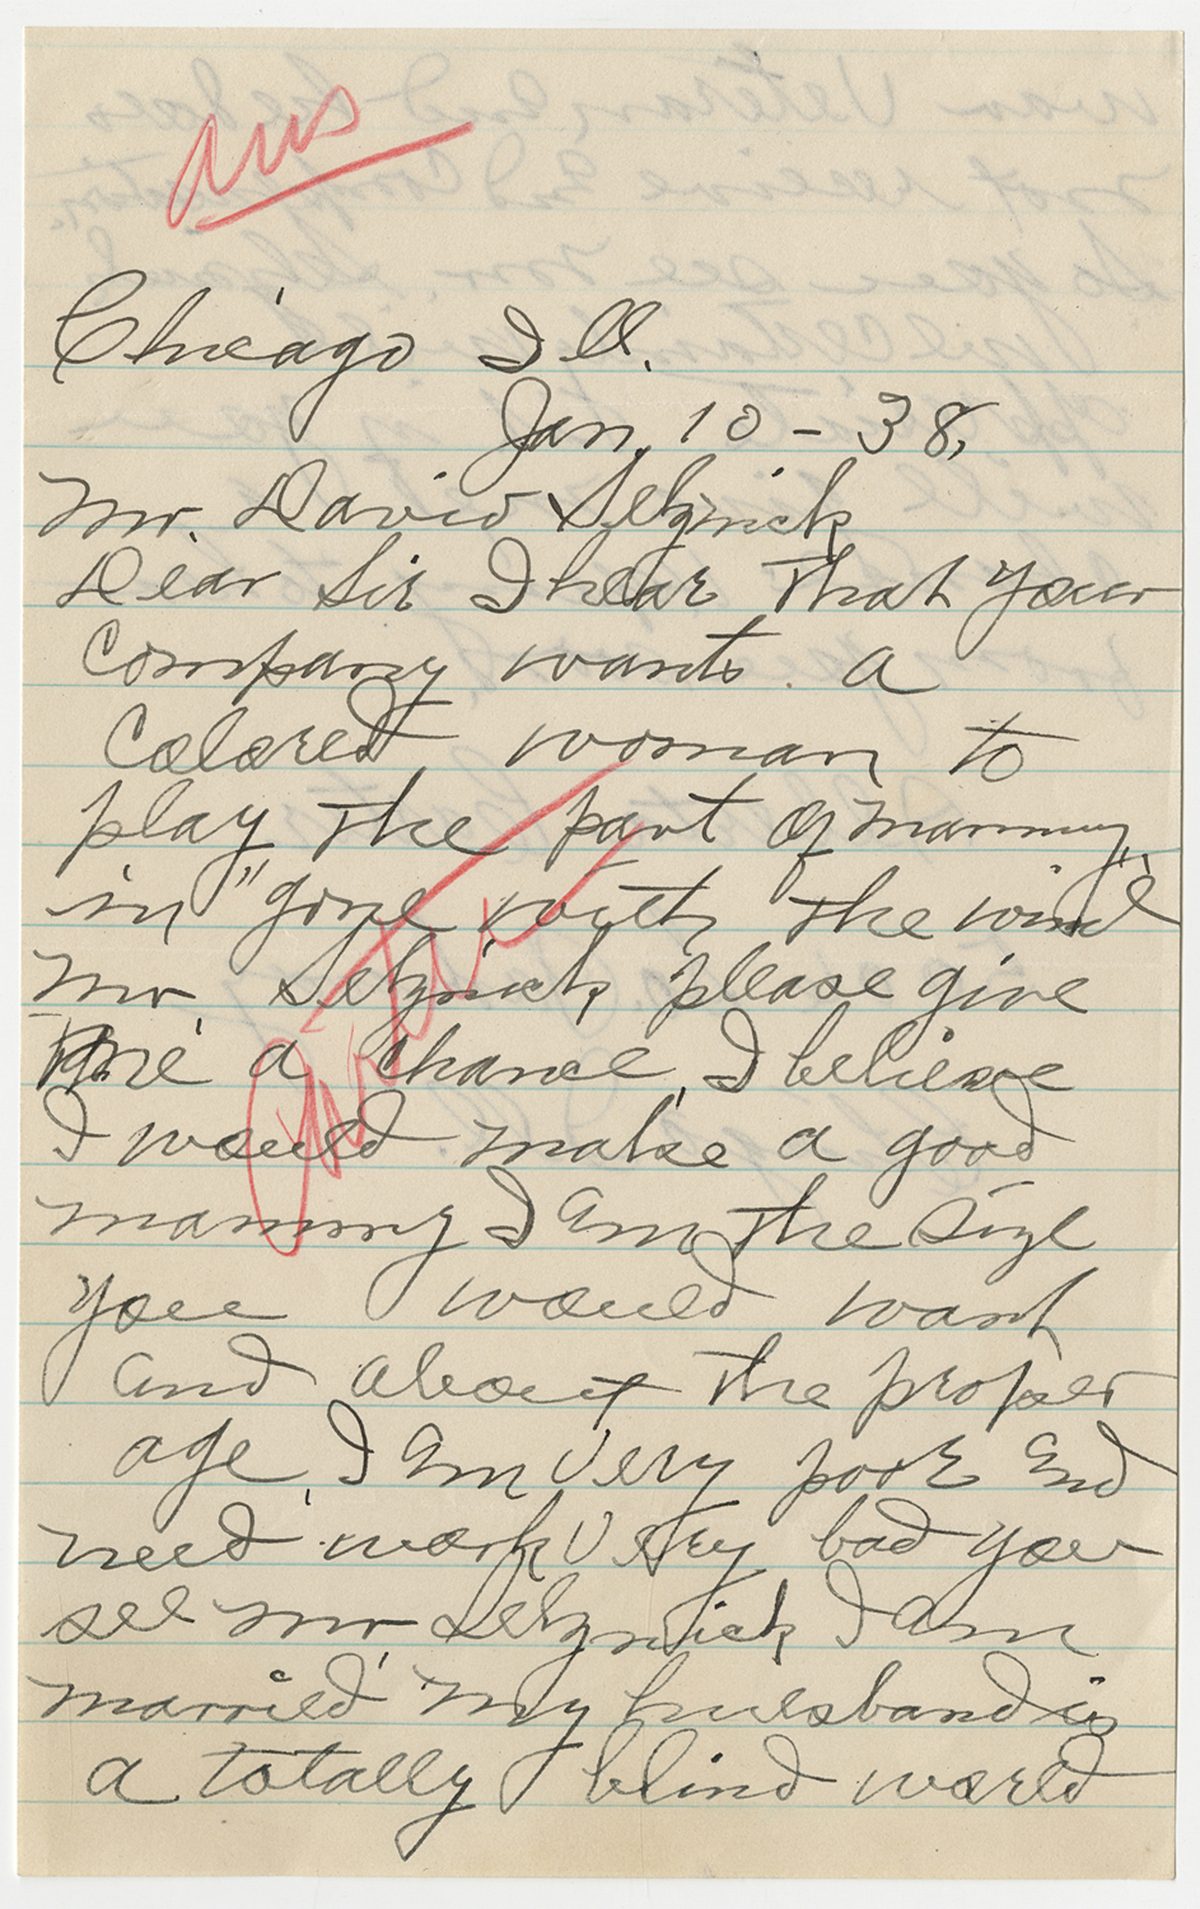 ans
Chicago Ill.
Jan. 10 - 38,
Mr. David Selznick
Dear Sir I hear that your
Company wants a
Colored woman to
play the part of mammy
in "gone with the wind"
Mr. Selznick please give
me a chance, I believe
I would make a good
mammy I am the size
you would want
and about the proper
age, I am very poor and
need work very bad you
see Mr. Selznick I am
married my husband is
a totally blind world